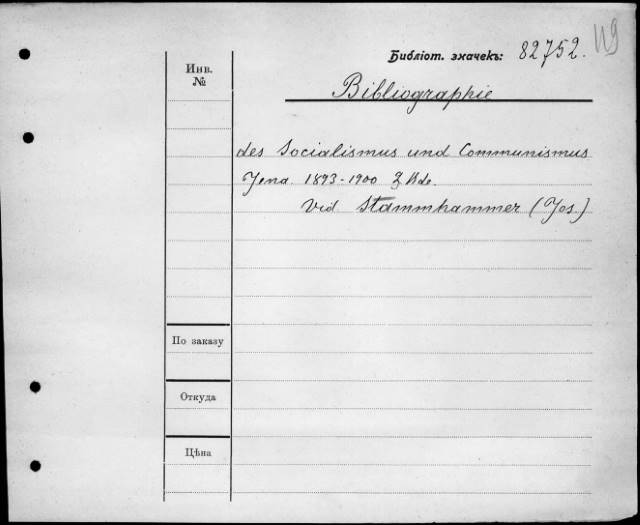 Библіот. значекъ: 82752.
Инв. №
Bibliographie
des Socialismus und Communismus
Jena. 1893-1900 2 Bde.
Vid. Stammhammer (Jos.)
По заказу
Откуда
Цѣна